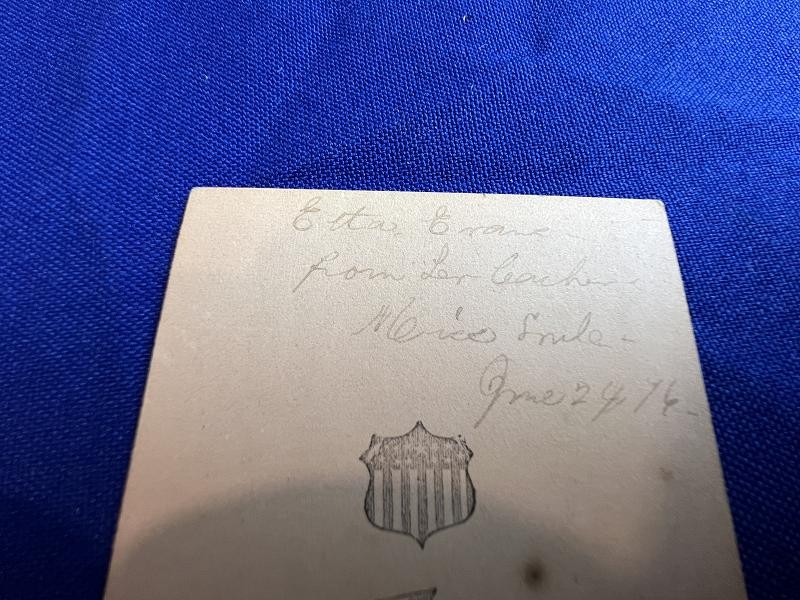 Etta Evans
from her teacher
Miss
June 24 76